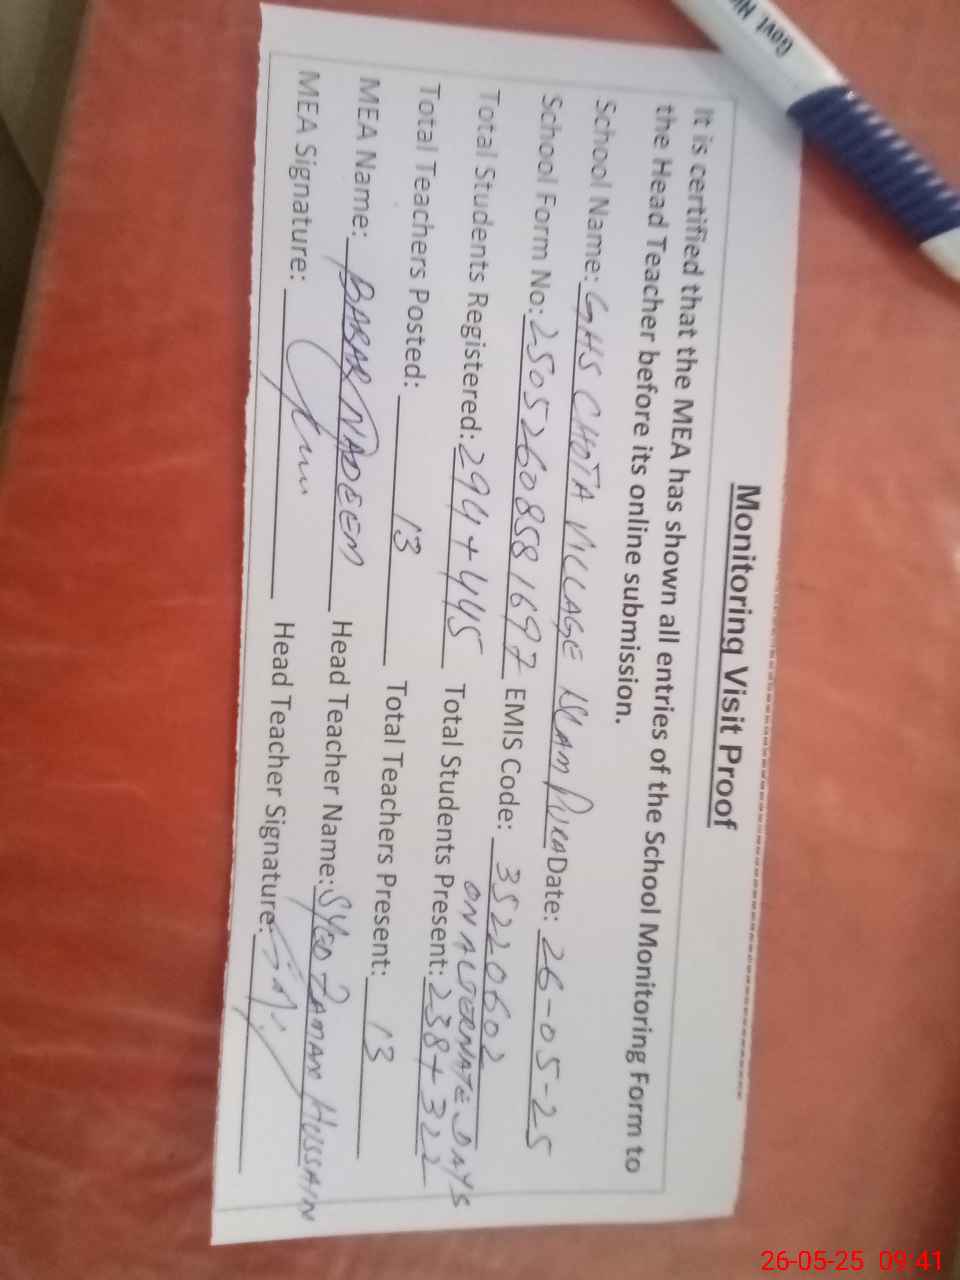 Monitoring Visit Proof
It is certified that the MEA has shown all entries of the School Monitoring Form to
the Head Teacher before its online submission.
School Name: GHS CHOTA VILLAGE ISLAM PURA Date: 26-05-25
School Form No: 25052608581697 EMIS Code: 35220602
ON ALTERNATE DAYS
Total Students Registered: 294+445 Total Students Present: 238+322
Total Teachers Posted: 13 Total Teachers Present: 13
MEA Name: BABAR NADEEM Head Teacher Name: SYED ZAMAN HUSSAIN
MEA Signature: Head Teacher Signature:
Govt.
26-05-25 09:41